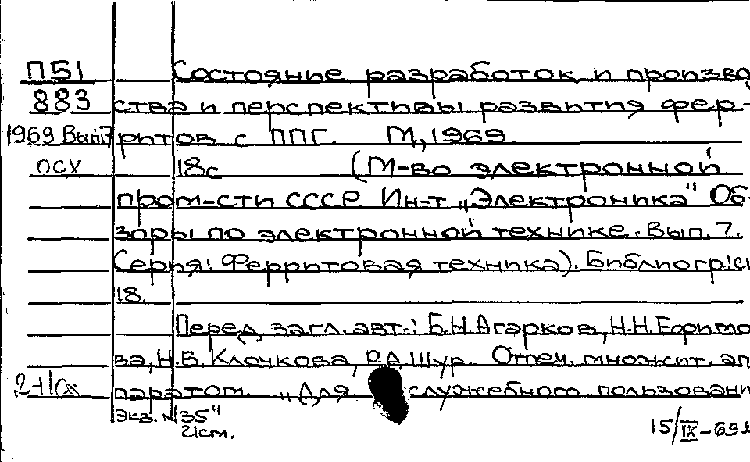 П51 Состояние разработок и произво
883 ства и перспективы развития фер-
1969 Вып7 ритов с ППГ. М, 1969.
осх 18с (М-во электронной
пром-сти СССР Ин-т „Электроника" Об-
зоры по электронной технике. Вып. 7.
Серия: Ферритовая техника). Библиогр:с
18.
Перед загл. авт.: Б.Н.Агарков, Н.Н.Ефимо
ва, Н.В. Клочкова, Р.А.Шур. Отпеч. множит. ап
паратом. „Для служебного пользовани
экз. №35"
2/cт.
15/IX-69